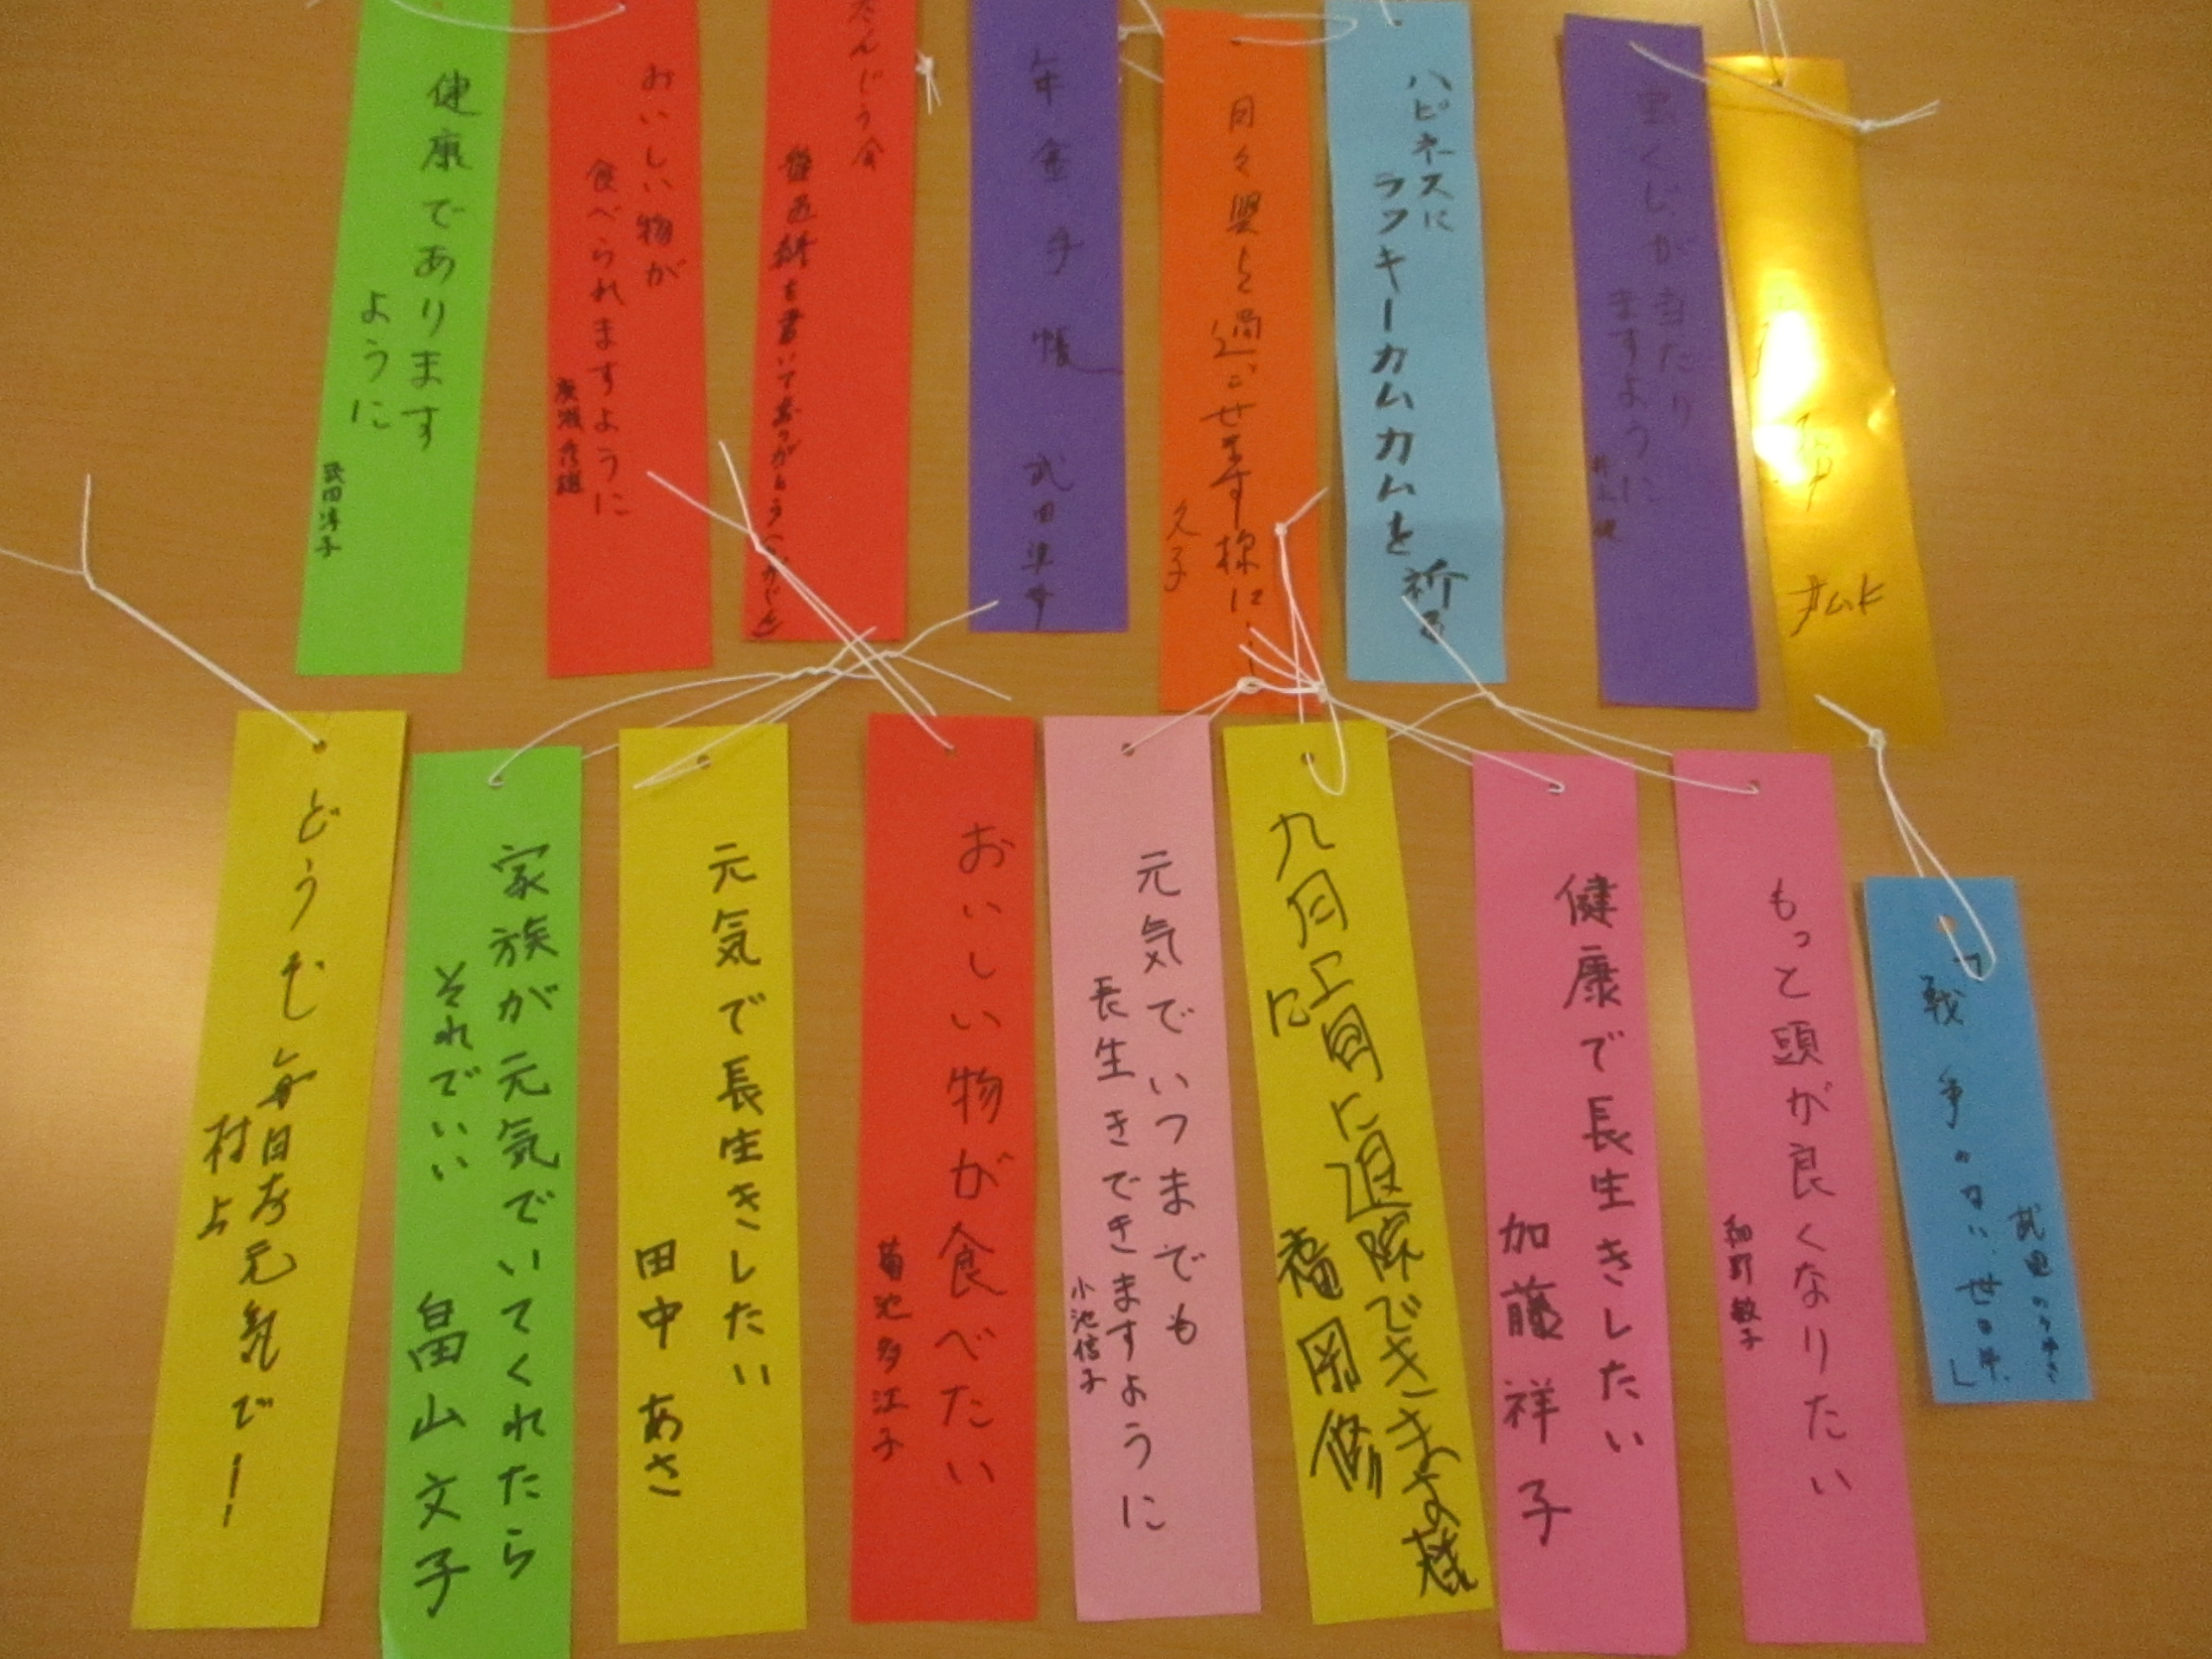 健康であります
ように
武田淳子
おいしい物が
食べられますように
たんじょう会
年金手帳
日々楽しく過ごせます様に…
久子
ハピネスに
ラッキーカムカムを祈る
宝くじが当たり
ますように
どうも毎日お元気で!
村上
家族が元気でいてくれたら
それでいい
畠山文子
元気で長生きしたい
田中あさ
おいしい物が食べたい
菊池多江子
元気でいつまでも
長生きできますように
小池信子
九月上旬に退院できます様
に
福岡修
健康で長生きしたい
加藤祥子
もっと頭が良くなりたい
和野敏子
「戦争のない世界」